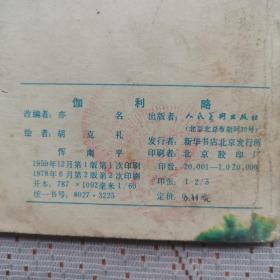 伽利略
改编者：亦名
出版者：人民美术出版社
（北京北总布胡同32号）
绘者：胡克礼
发行者：新华书店北京发行所
恽南平
印刷者：北京胶印
1959年12月第1版第1次印刷
印数：20,001—1,020,000
1978年6月第2版第2次印刷
印张：1-2/5
开本：787×1092毫米1/60
统一书号：8027·3225
定价：